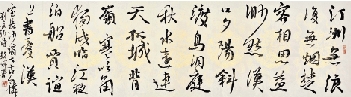 汀洲無浪
復無煙楚
客相思益
渺然漢
口夕陽斜
渡鳥洞庭
秋水遠連
天孤城背
嶺寒吹角
獨戍臨江夜
泊船賈誼
上書憂漢